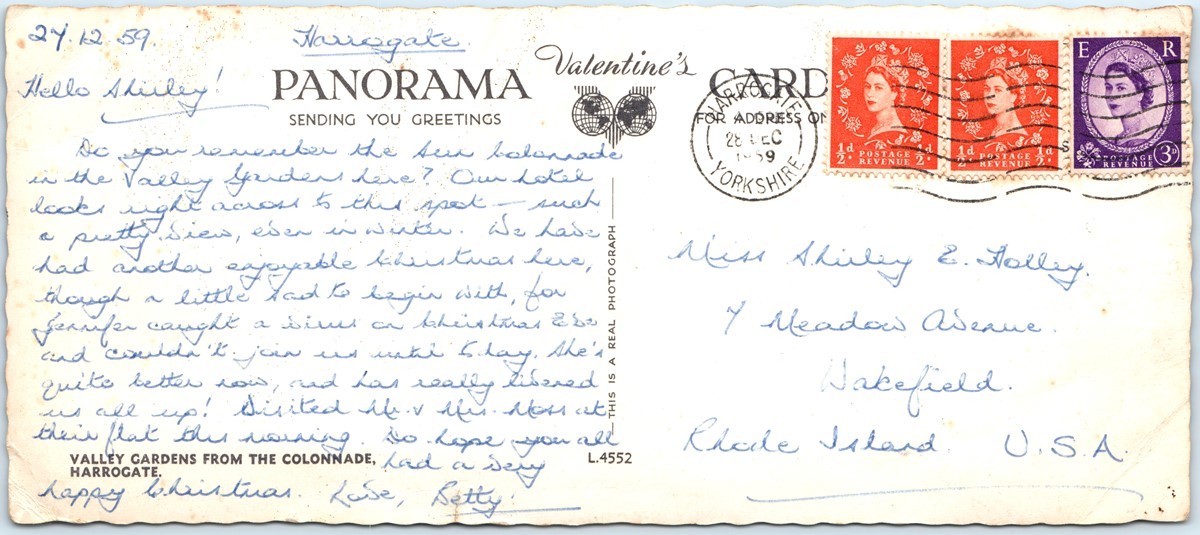 27.12.59.
Harrogate
Valentine's
PANORAMA CARD
SENDING YOU GREETINGS
FOR ADDRESS ON
Hello Shirley!
Do you remember the Sun Colonnade
in the Valley Gardens here? Our hotel
looks right across to this spot – such
a pretty view, even in winter. We have
had another enjoyable Christmas here,
though a little sad to begin with, for
Jennifer caught a virus on Christmas Eve
and couldn't join us until to-day. She's
quite better now, and has really livened
us all up! Visited Mr. & Mrs. Moss at
their flat this morning. Do hope you all
had a very
happy Christmas. Love, Betty.
VALLEY GARDENS FROM THE COLONNADE,
HARROGATE.
L.4552
THIS IS A REAL PHOTOGRAPH
HARROGATE
28 DEC
1959
YORKSHIRE
½d POSTAGE REVENUE ½d
½d POSTAGE REVENUE ½d
E R
POSTAGE REVENUE 3D
Miss Shirley E. Holley.
7 Meadow Avenue.
Wakefield.
Rhode Island. U.S.A.